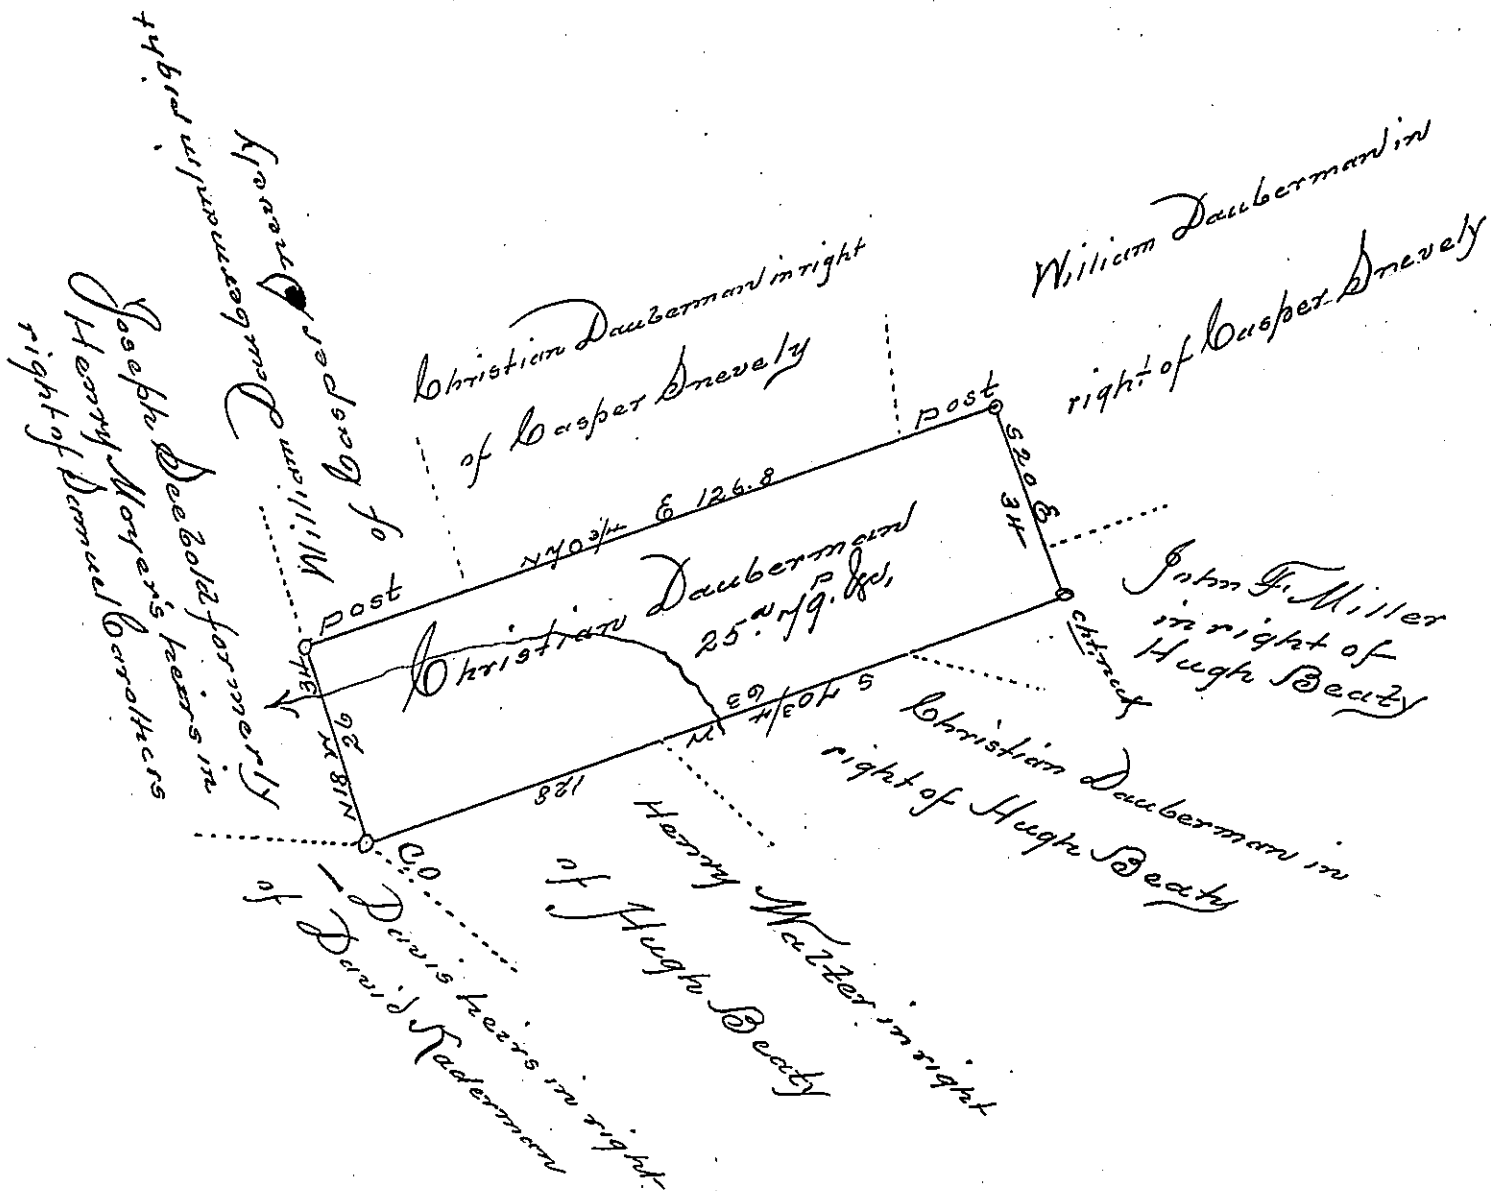 William Dauberman in right
of Casper Snevely
Christian Dauberman in right
of Casper Snevely
William Dauberman in
right of Casper Snevely
Joseph Seebold formerly
Henry Moyer's heirs in
right of Samuel Carothers
post
N 70 3/4 E 126.8
post
S 20 E
34
chtnut
Christian Dauberman
25.a 79.p &c,
John F. Miller
in right of
Hugh Beaty
S 70 3/4 W
63
128
Christian Dauberman in
right of Hugh Beaty
Henry Walter in right
of Hugh Beaty
N 18 W
26
34
C.O
Davis heirs in right
of David Kaderman